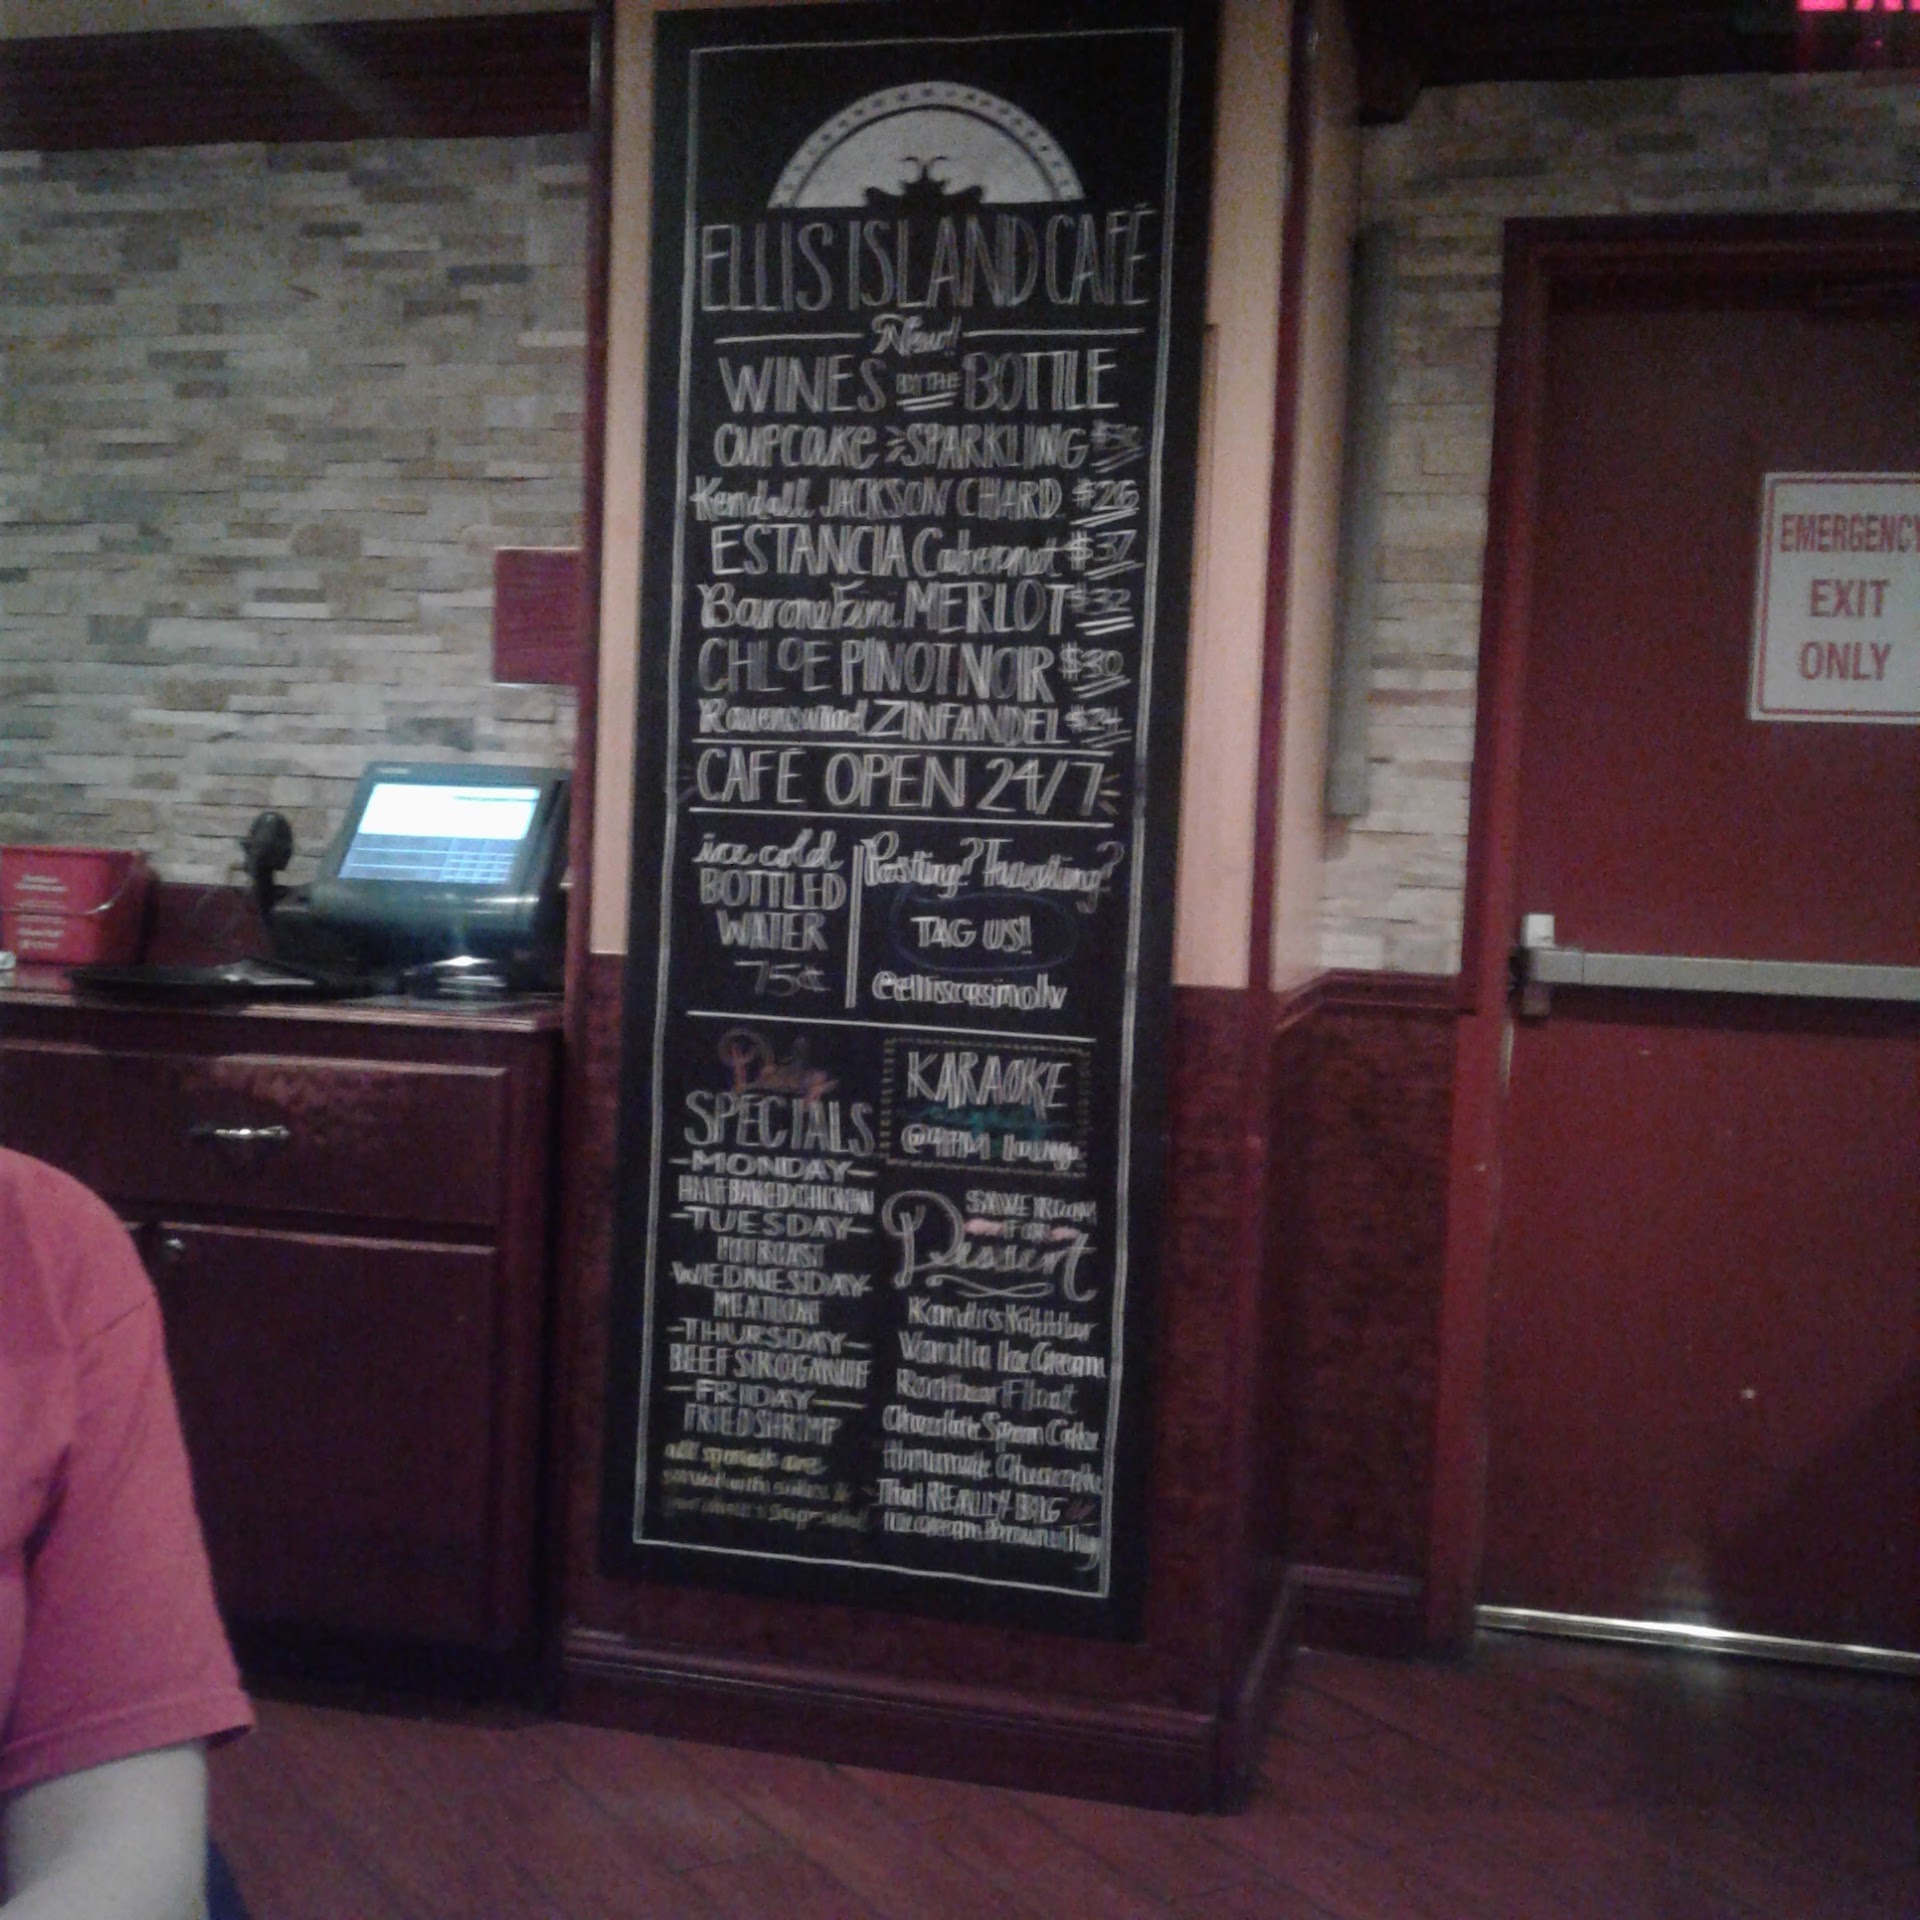 ELLIS ISLAND CAFÉ
New!
WINES BY THE BOTTLE
CUPCAKE SPARKLING
Kendall JACKSON CHARD. $26
ESTANCIA Cabernet $37
Barone Fini MERLOT $32
CHLOE PINOT NOIR $30
Ravenswood ZINFANDEL $24
CAFÉ OPEN 24/7
ice cold
BOTTLED
WATER
75¢
Posting? Tweeting?
TAG US!
@elliscasinolv
Daily
SPECIALS
-MONDAY-
HALF BAKED CHICKEN
-TUESDAY-
POT ROAST
WEDNESDAY-
MEATLOAF
-THURSDAY-
BEEF STROGANOFF
-FRIDAY-
FRIED SHRIMP
all specials are
served with
KARAOKE
@ 9PM Lounge
SAVE ROOM
FOR
Dessert
Vanilla Ice Cream
Rootbeer Float
Chocolate Spoon Cake
Homemade Cheesecake
That REALLY BIG
Ice Cream Brownie Thing
EMERGENCY
EXIT
ONLY